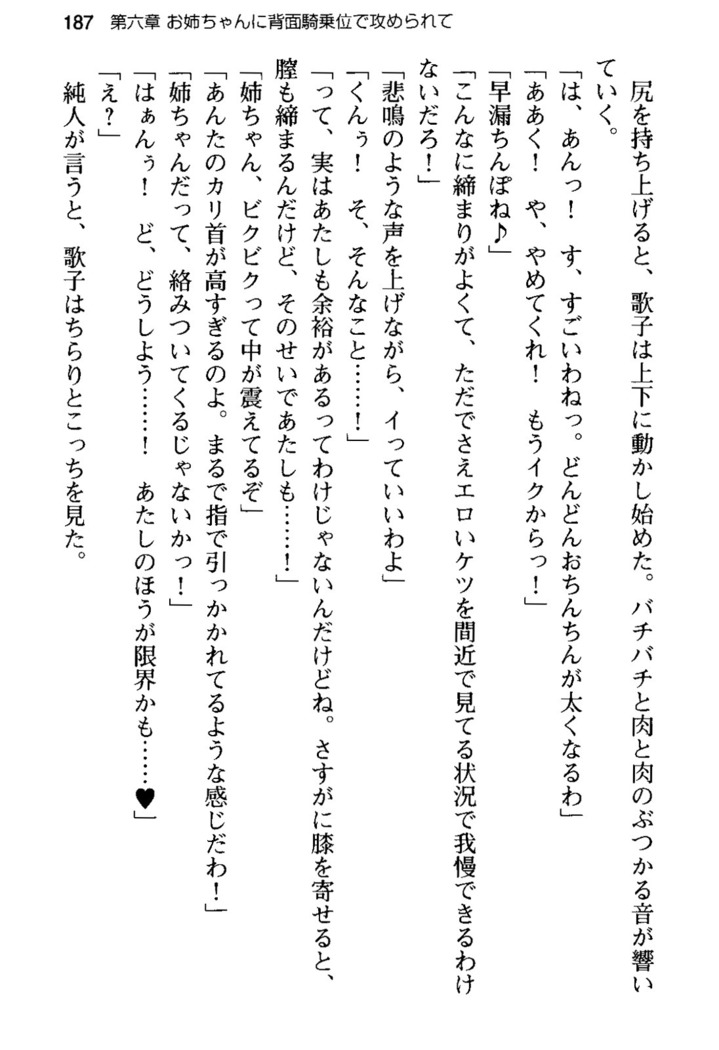 187 第六章 お姉ちゃんに背面騎乗位で攻められて
尻を持ち上げると、歌子は上下に動かし始めた。バチバチと肉と肉のぶつかる音が響い
ていく。
「は、あんっ！ す、すごいわねっ。どんどんおちんちんが太くなるわ」
「ああく！ や、やめてくれ！ もうイクからっ！」
「早漏ちんぽね♪」
「こんなに締まりがよくて、ただでさえエロいケツを間近で見てる状況で我慢できるわけ
ないだろ！」
「悲鳴のような声を上げながら、イっていいわよ」
「くんぅ！ そ、そんなこと……！」
「って、実はあたしも余裕があるってわけじゃないんだけどね。さすがに膝を寄せると、
膣も締まるんだけど、そのせいであたしも……！」
「姉ちゃん、ビクビクって中が震えてるぞ」
「あんたのカリ首が高すぎるのよ。まるで指で引っかかれてるような感じだわ！」
「姉ちゃんだって、絡みついてくるじゃないかっ！」
「はぁんぅ！ ど、どうしよう……！ あたしのほうが限界かも……♥」
「え？」
純人が言うと、歌子はちらりとこっちを見た。